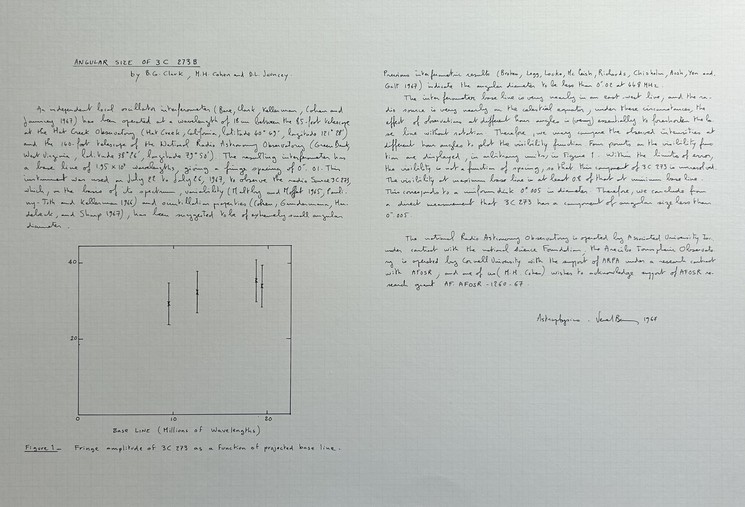 ANGULAR SIZE OF 3C 273B
by B.G. Clark, M.H. Cohen and D.L. Jauncey
An independent local oscillator interferometer (Bare, Clark, Kellerman, Cohen and
Jauncey 1967) has been operated at a wavelength of 18 cm between the 85-foot telescope
at the Hat Creek Observatory (Hat Creek, California, latitude longitude 121° 28')
and the 140-foot telescope of the National Radio Astronomy Observatory (Green Bank,
West Virginia, latitude 38° 26', longitude 79° 50'). The resulting interferometer has
a base line of wavelengths, giving a fringe spacing of 0".01. This
instrument was used on July 22 to July 26, 1967, to observe the radio source 3C 273
which, on the basis of its spectrum, variability (Maltby and Moffet 1965, Pauli-
ny-Toth and Kellerman 1966) and scintillation properties (Cohen, Gundermann, Har-
debeck, and Sharp 1967), has been suggested to be of extremely small angular
diameter.
40
20
0
10
20
BASE LINE (Millions of Wavelengths)
Figure 1_ Fringe amplitude of 3C 273 as a function of projected base line.
Previous interferometric results (Broten, Legg, Locke, Mc Leish, Richards, Chisholm, Yen and
Galt 1967) indicate the angular diameter to be less than 0".02 at 448 MHz.
The interferometer base line is very nearly an east west line, and the ra-
dio source is very nearly on the celestial equator, under these circumstances, the
effect of observations at different hour angles is essentially to foreshorten the ba
se line without rotation. Therefore, we may compare the observed intensities at
different hour angles to plot the visibility function. Four points on the visibility func
tion are displayed, in arbitrary units, in Figure 1. Within the limits of error,
the visibility is not a function of spacing, so that this component of 3C 273 is unresolved.
The visibility at maximum base line is at least 0.8 of that at minimum base line.
This corresponds to a uniform disk 0".005 in diameter. Therefore, we can conclude from
a direct measurement that 3C 273 has a component of angular size less than
0".005.
The national Radio Astronomy Observatory is operated by Associated University In
under contract with the national science Foundation, the Arecibo Ionospheric Observato
ry is operated by Cornell University with the support of ARPA under a research contract
with AFOSR, and one of us (M.H. Cohen) wishes to acknowledge support of AFOSR re-
search grant AF AFOSR -1260-67.
Astrophysics - 1968